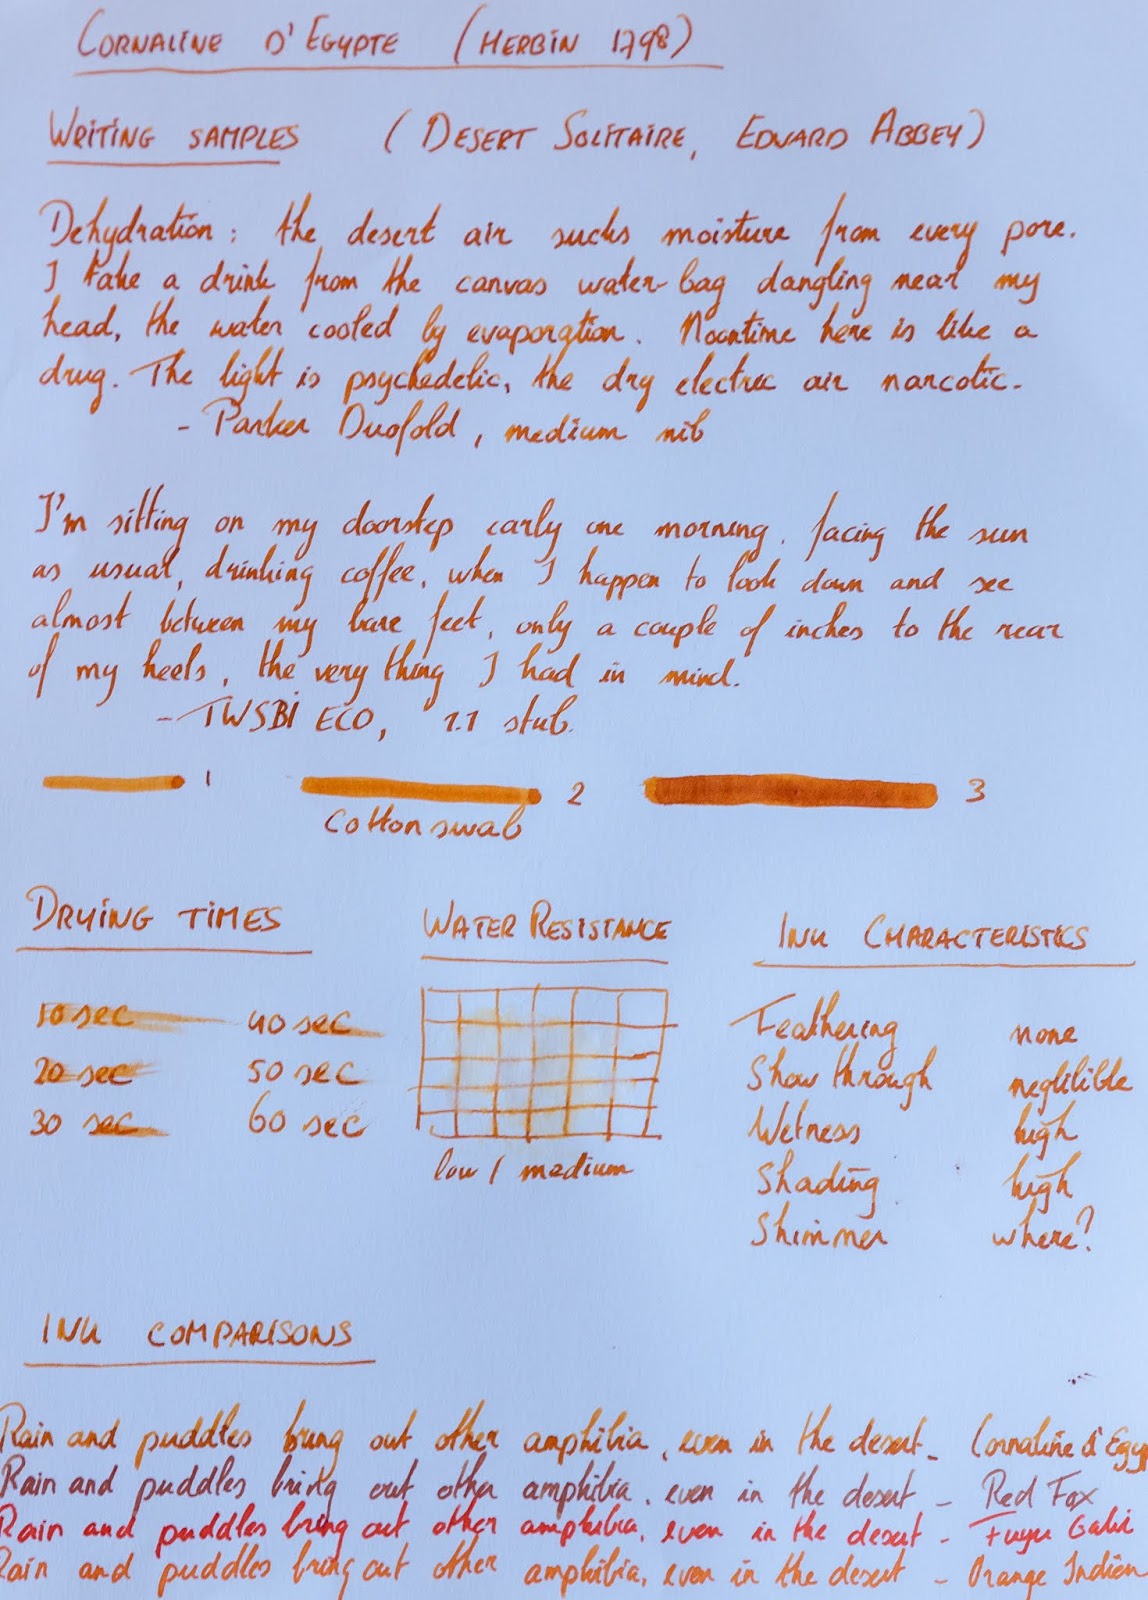 CORNALINE D'EGYPTE (HERBIN 1798)
WRITING SAMPLES (DESERT SOLITAIRE, EDWARD ABBEY)
Dehydration: the desert air sucks moisture from every pore.
I take a drink from the canvas water-bag dangling near my
head, the water cooled by evaporation. Noontime here is like a
drug. The light is psychedelic, the dry electric air narcotic.
- Parker Duofold, medium nib
I'm sitting on my doorstep early one morning, facing the sun
as usual, drinking coffee, when I happen to look down and see
almost between my bare feet, only a couple of inches to the rear
of my heels, the very thing I had in mind.
- TWSBI ECO, 1.1 stub.
1 2 3
Cotton swab
DRYING TIMES
10 sec 40 sec
20 sec 50 sec
30 sec 60 sec
WATER RESISTANCE
low / medium
INK CHARACTERISTICS
Feathering none
Show through neglilible
Wetness high
Shading high
Shimmer where?
INK COMPARISONS
Rain and puddles bring out other amphibia, even in the desert - Cornaline d'Egyp
Rain and puddles bring out other amphibia, even in the desert - Red Fox
Rain and puddles bring out other amphibia, even in the desert - Fuyu Gaki
Rain and puddles bring out other amphibia, even in the desert - Orange Indien